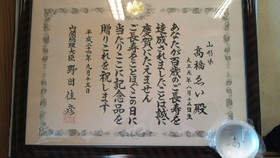 山形県
高橋ゑい殿
大正元年八月十六日生
あなたが百歳のご長寿を
達成されましたことは誠に
慶賀にたえません
ご長寿をことほぐこの日に
当たりここに記念品を
贈りこれを祝します
平成二十四年九月十五日
内閣総理大臣 野田佳彦